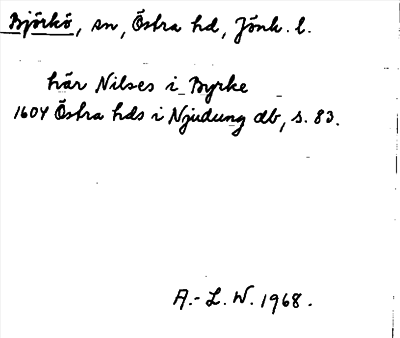 Björkö, sn, Östra hd, Jönk. l.
här Nilses i Byrke
1604 Östra hds i Njudung db, s. 83.
A.-L. W. 1968.